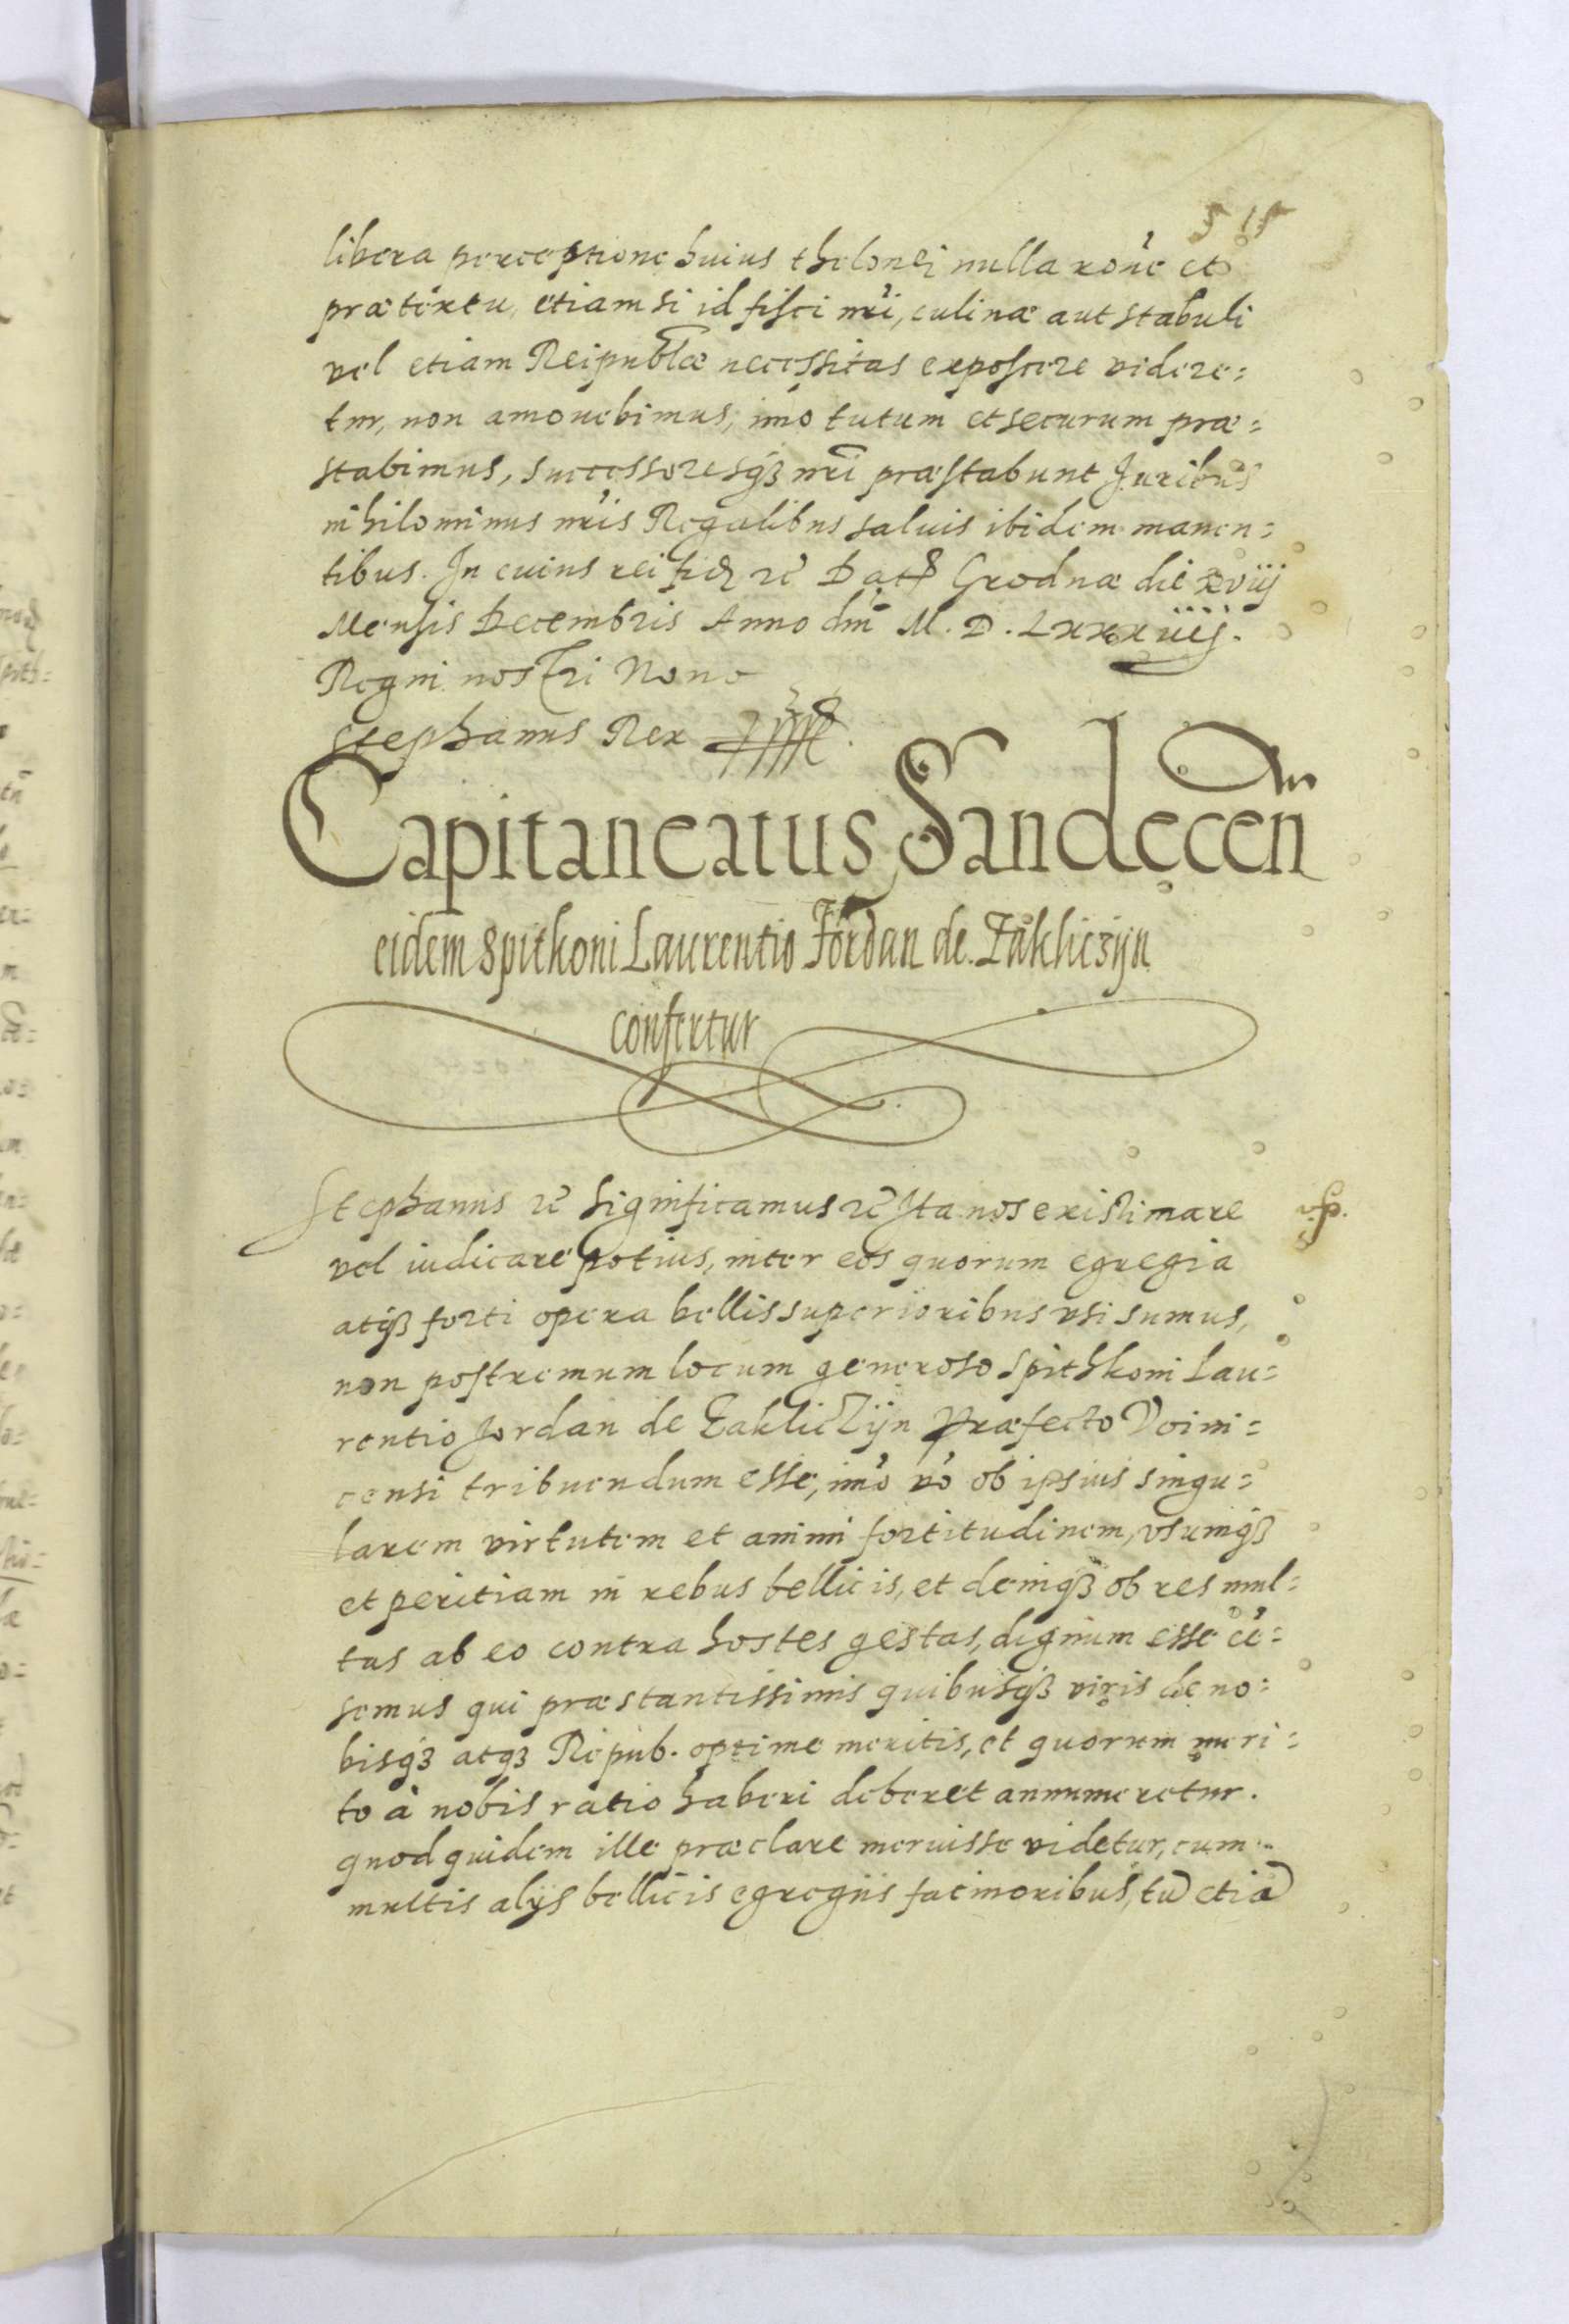 515
libera perceptione huius thelonei nulla rõne et
prætextu, etiam si id fisci nri, culinæ aut stabuli
vel etiam Reipublcæ necessitas exposcere videre=
tur, non amouebimus, imo tutum et securum præ=
stabimus, successoresq3 nri præstabunt Juribus
nihilominus nris Regalibus saluis ibidem manen=
tibus. In cuius rei fid ec Dat Grodnæ die xviij
Mensis Decembris Anno dni M. D. Lxxxiiij.
Regni nostri Nono
Stephanus Rex
Capitaneatus Sandecen
eidem Spitkoni Laurentio Jordan de Zakliczijn
confertur
Stephanus ec Significamus ec Ita nos existimare
vel iudicare potius, inter eos quorum egregia
atq3 forti opera bellis superioribus vsi sumus,
non postremum locum generoso Spithkoni Lau=
rentio Jordan de Zakliczijn Præfecto Voini=
censi tribuendum esse, imo vo ob ipsius singu=
larem virtutem et animi fortitudinem, vsumq3
et peritiam in rebus bellicis, et deniq3 ob res mul=
tas ab eo contra hostes gestas, dignum esse cē=
semus qui præstantissimis quibusq3 viris de no=
bisq3 atq3 Repub. optime meritis, et quorum meri=
to à nobis ratio haberi deberet annumeretur.
quod quidem ille præclare meruisse videtur, cum
multis alijs bellicis egregijs facinoribus, tū etiā